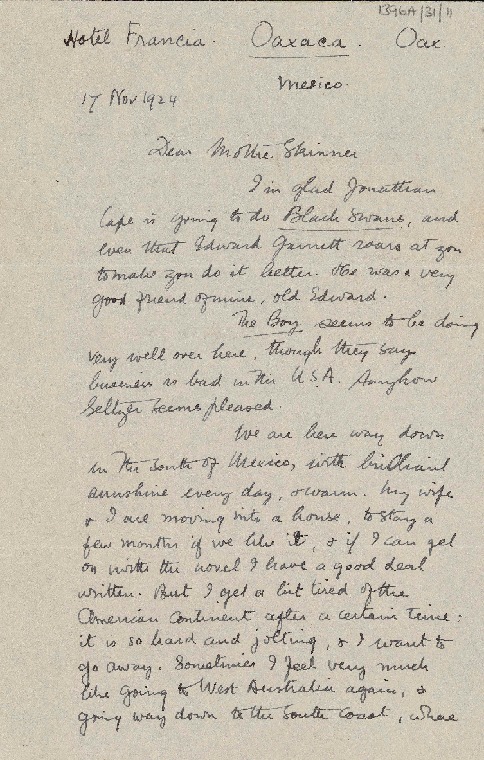 1396A/31/11
Hotel Francia. Oaxaca. Oax
Mexico.
17 Nov 1924
Dear Mollie Skinner
I'm glad Jonathan
Cape is going to do Black Swans, and
even that Edward Garnett roars at you
to make you do it better. He was a very
good friend of mine, old Edward.
The Boy seems to be doing
very well over here, though they say
business is bad in the U.S.A. Anyhow
Seltzer seems pleased.
We are here way down
in the South of Mexico, with brilliant
sunshine every day, & warm. My wife
& I are moving into a house, to stay a
few months if we like it, & if I can get
on with the novel I have a good deal
written. But I get a bit tired of the
American continent after a certain time:
it is so hard and jolting, & I want to
go away. Sometimes I feel very much
like going to West Australia again, &
going way down to the South Coast, where